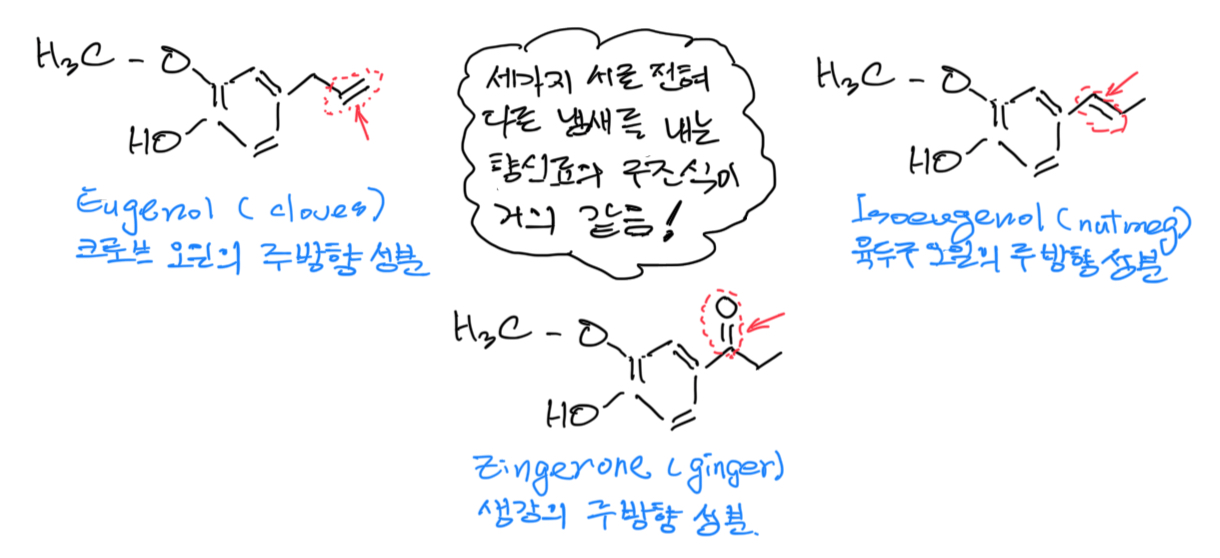 H₃C - O
HO
Eugenol (cloves)
크로브 오일의 주방향 성분
세가지 서로 전혀
다른 냄새를 내는
향신료의 구조식이
거의 같음!
H₃C - O
HO
Isoeugenol (nutmeg)
육두구 오일의 주방향 성분
O
H₃C - O
HO
Zingerone (ginger)
생강의 주방향 성분.